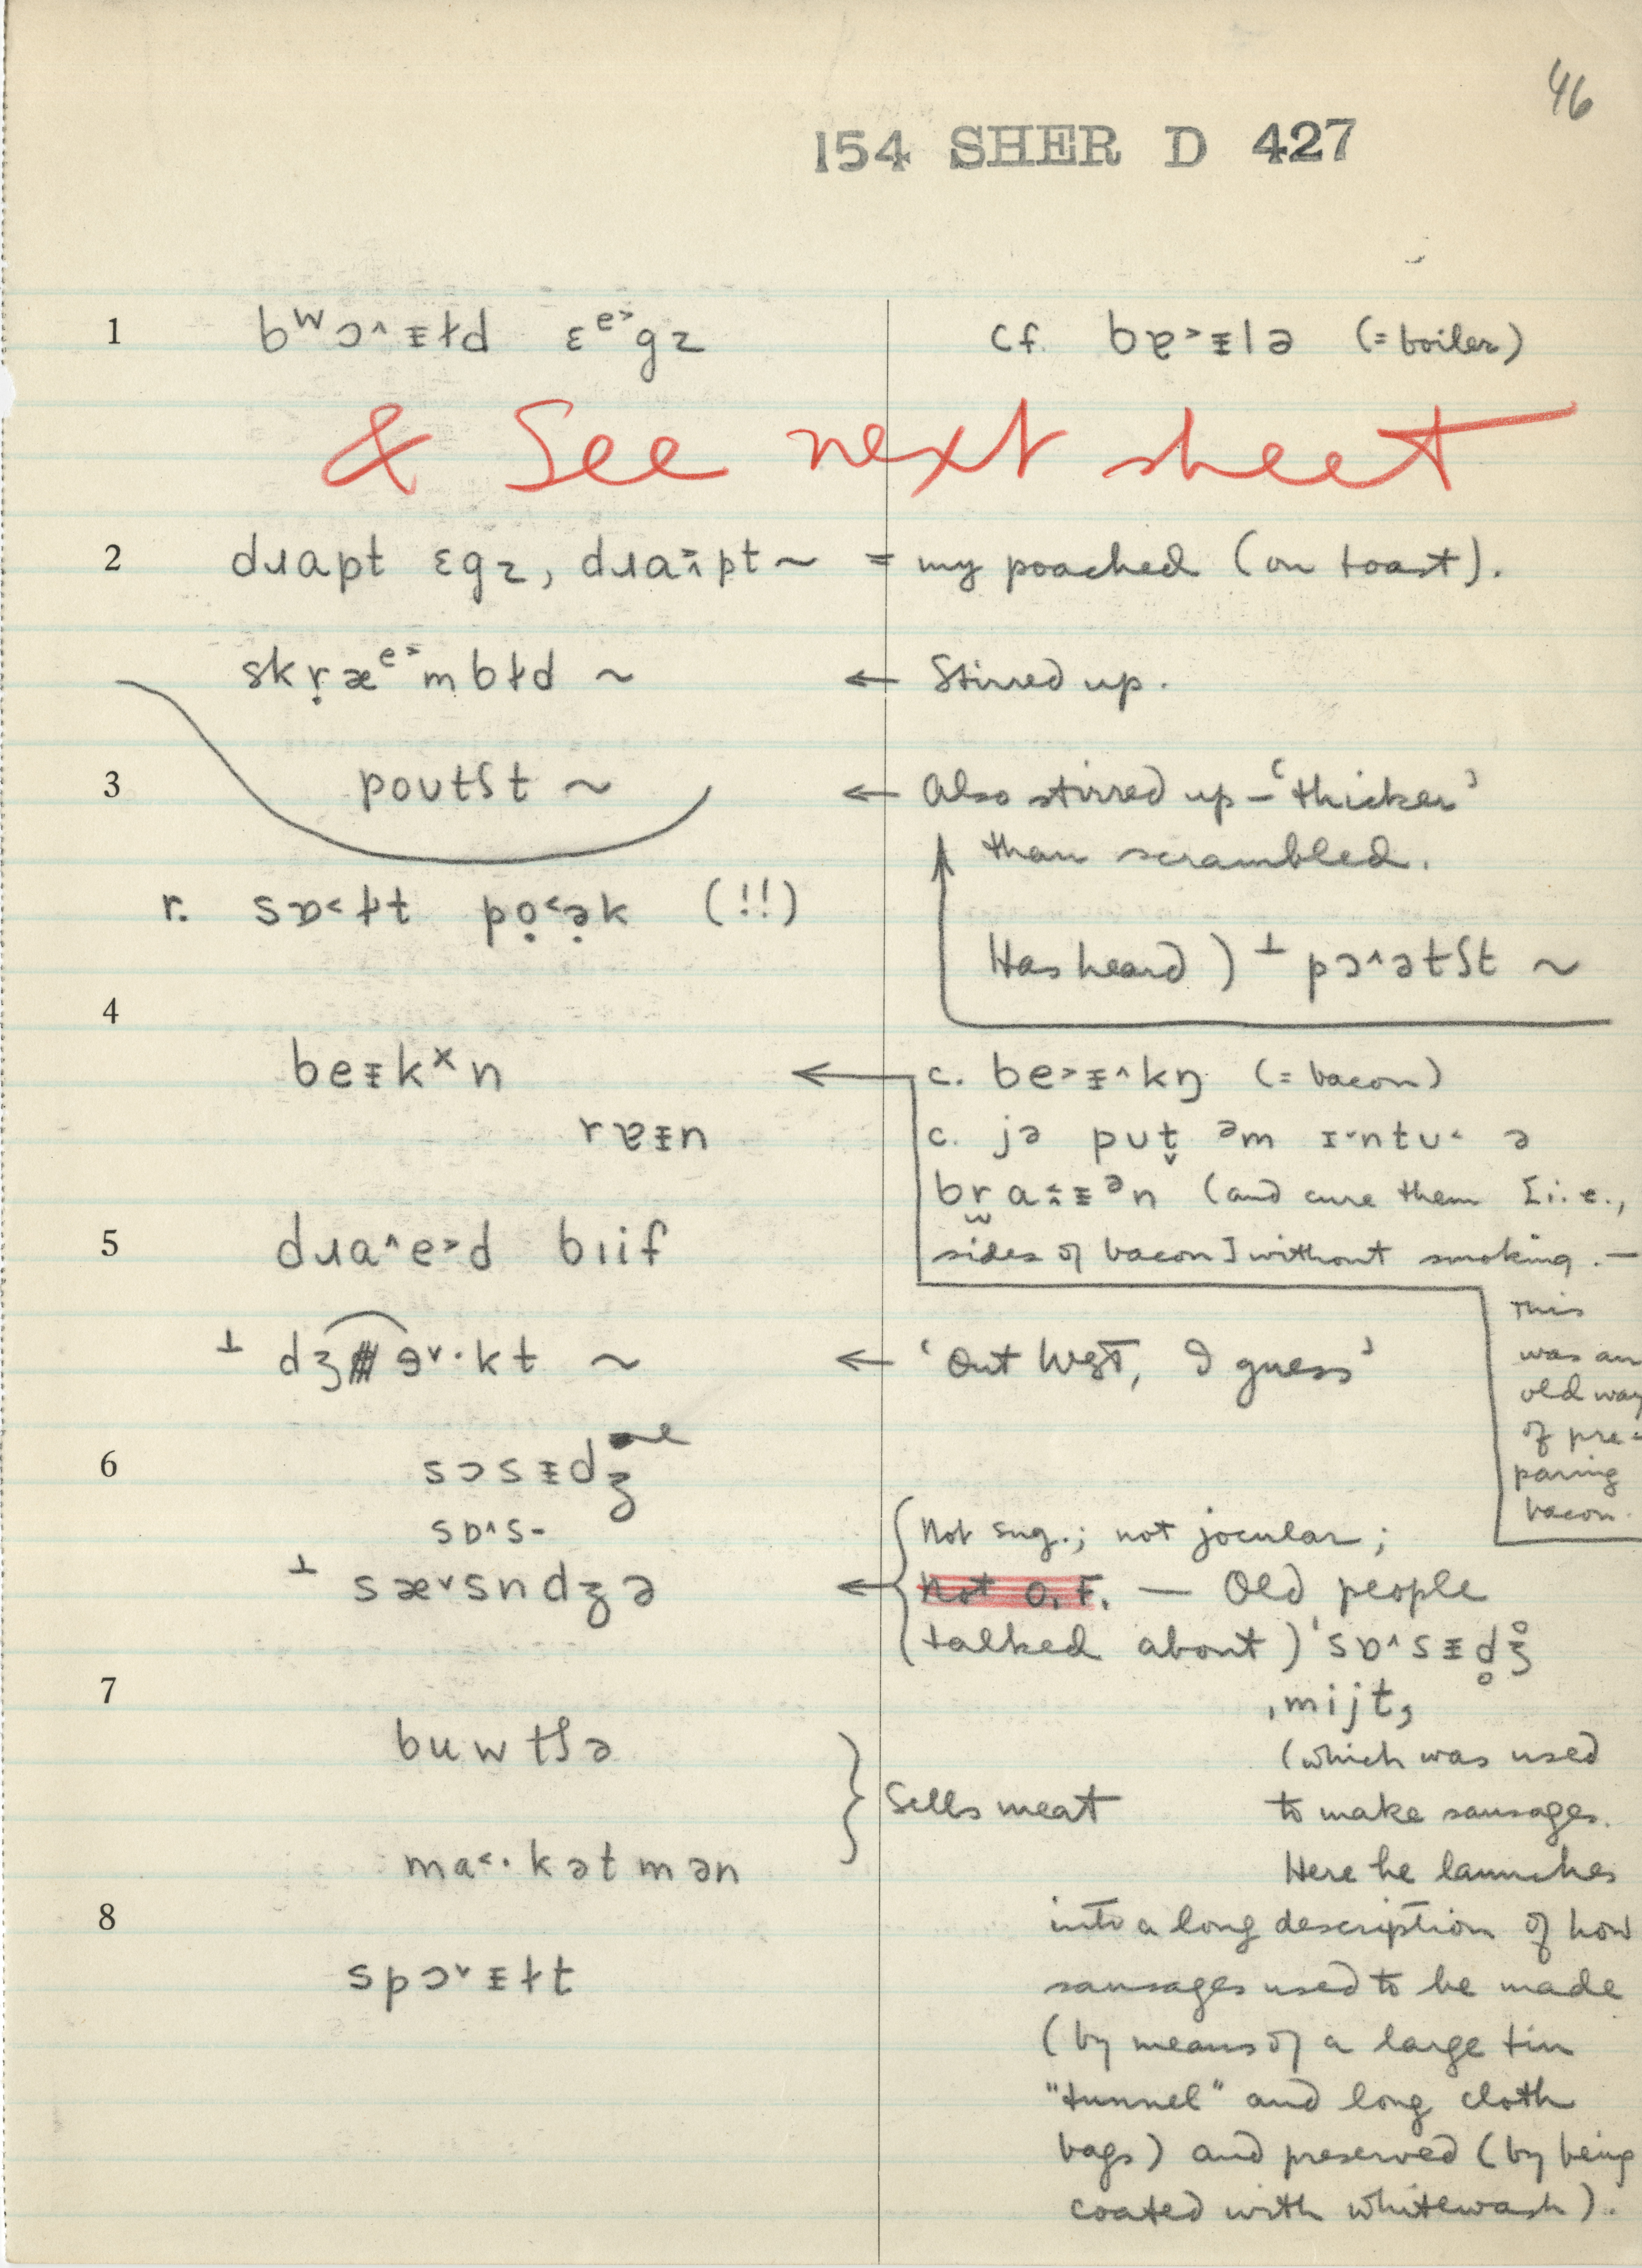 46
154 SHER D 427
1 bʷɔ^ᵻɫd ɛᵉ˃gz cf. bɐ˃ᵻlə (= boiler)
& See next sheet
2 dɹapt ɛgz, dɹaɪ̯pt ~ = my poached (on toast).
skṛæᵉ˃mbɫd ~ ← Stirred up.
3 poʊtʃt ~ ← Also stirred up – 'thicker'
than scrambled.
r. sɒ˂ɫt pọ˂ə̣k (!!)
Has heard) ⊥ pɔ^ətʃt ~
4
beᵻkˣn ← c. be˃ᵻ^kŋ (= bacon)
rɐᵻn c. jə pʊt̬ ᵊm ɪ˅ntʊ˂ ə
braᵻᵊn (and cure them [i.e.,
5 dɹa^e˃d bɪif sides of bacon] without smoking. —
This
⊥ dʒɘ˅·kt ~ ← 'Out West, I guess'
was an
old way
of pre-
6 sɔsᵻdʒ
paring
bacon.
sɒ^s-
Not sug.; not jocular;
⊥ sæ˅sndʒə ← Not O.F. — Old people
talked about) 'sɒ^sᵻd̥ʒ̊
7 ˌmijt,
buwtʃə (which was used
} Sells meat to make sausages.
ma˂·kətmən Here he launches
8 into a long description of how
spɔ˅ᵻɫt sausages used to be made
(by means of a large tin
"tunnel" and long cloth
bags) and preserved (by being
coated with whitewash).